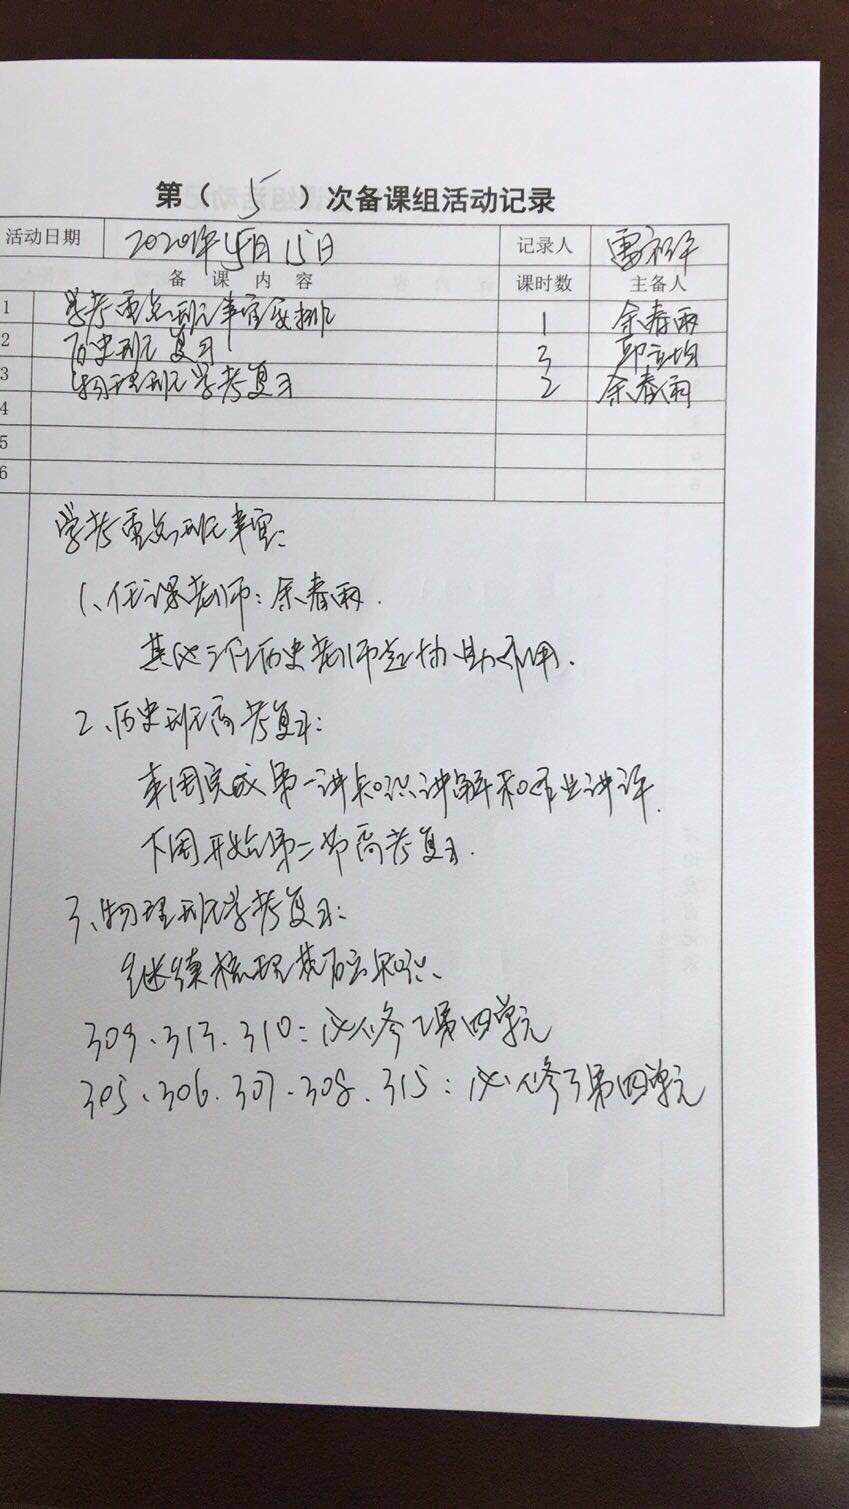 第（ 5 ）次备课组活动记录
活动日期 2020年5月15日 记录人 雷
备 课 内 容 课时数 主备人
1 学考重点班事宜安排 1 余春雨
2 历史班复习 3
3 物理班学考复习 2 余春雨
4
5
6
学考重点班事宜：
1、任课老师：余春雨.
其他三个历史老师起协助作用.
2、历史班高考复习：
本周完成第一讲知识讲解和作业讲评.
下周开始第二节高考复习.
3、物理班学考复习：
继续梳理基础知识、
309、313、310：必修2第四单元
305、306、307、308、315：必修3第四单元